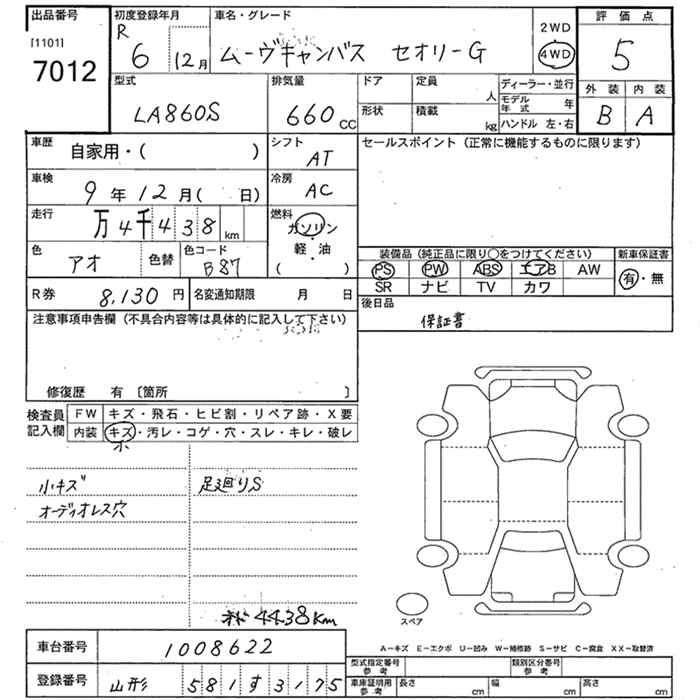 出品番号 初度登録年月 車名・グレード 評価点
[1101] 7012 R 6 12月 ムーヴキャンバス セオリーG 2WD 4WD 5
型式 排気量 ドア 定員 人 ディーラー・並行 外装 内装
LA860S 660 CC 形状 積載 kg モデル年式 年 B A
ハンドル 左・右
車歴 自家用・( ) シフト AT セールスポイント (正常に機能するものに限ります)
車検 9年12月( 日) 冷房 AC
走行 万4千438 km 燃料 ガソリン
軽・油
( )
色 アオ 色替 色コード B87
装備品 (純正品に限り○をつけてください) 新車保証書
PS PW ABS エアB AW 有・無
SR ナビ TV カワ
R券 8,130円 名変通知期限 月 日 後日品
保証書
注意事項申告欄 (不具合内容等は具体的に記入して下さい)
修復歴 有 〔箇所 〕
検査員記入欄 FW キズ・飛石・ヒビ割・リペア跡・X要
内装 キズ・汚レ・コゲ・穴・スレ・キレ・破レ
小キズ 足廻りS
オーディオレス穴
4438Km
スペア
A-キズ E-エクボ U-凹み W-補修跡 S-サビ C-腐食 XX-取替済
車台番号 1008622
型式指定番号 参考 類別区分番号 参考
登録番号 山形 581す3175
車庫証明用 参考 長さ cm 幅 cm 高さ cm